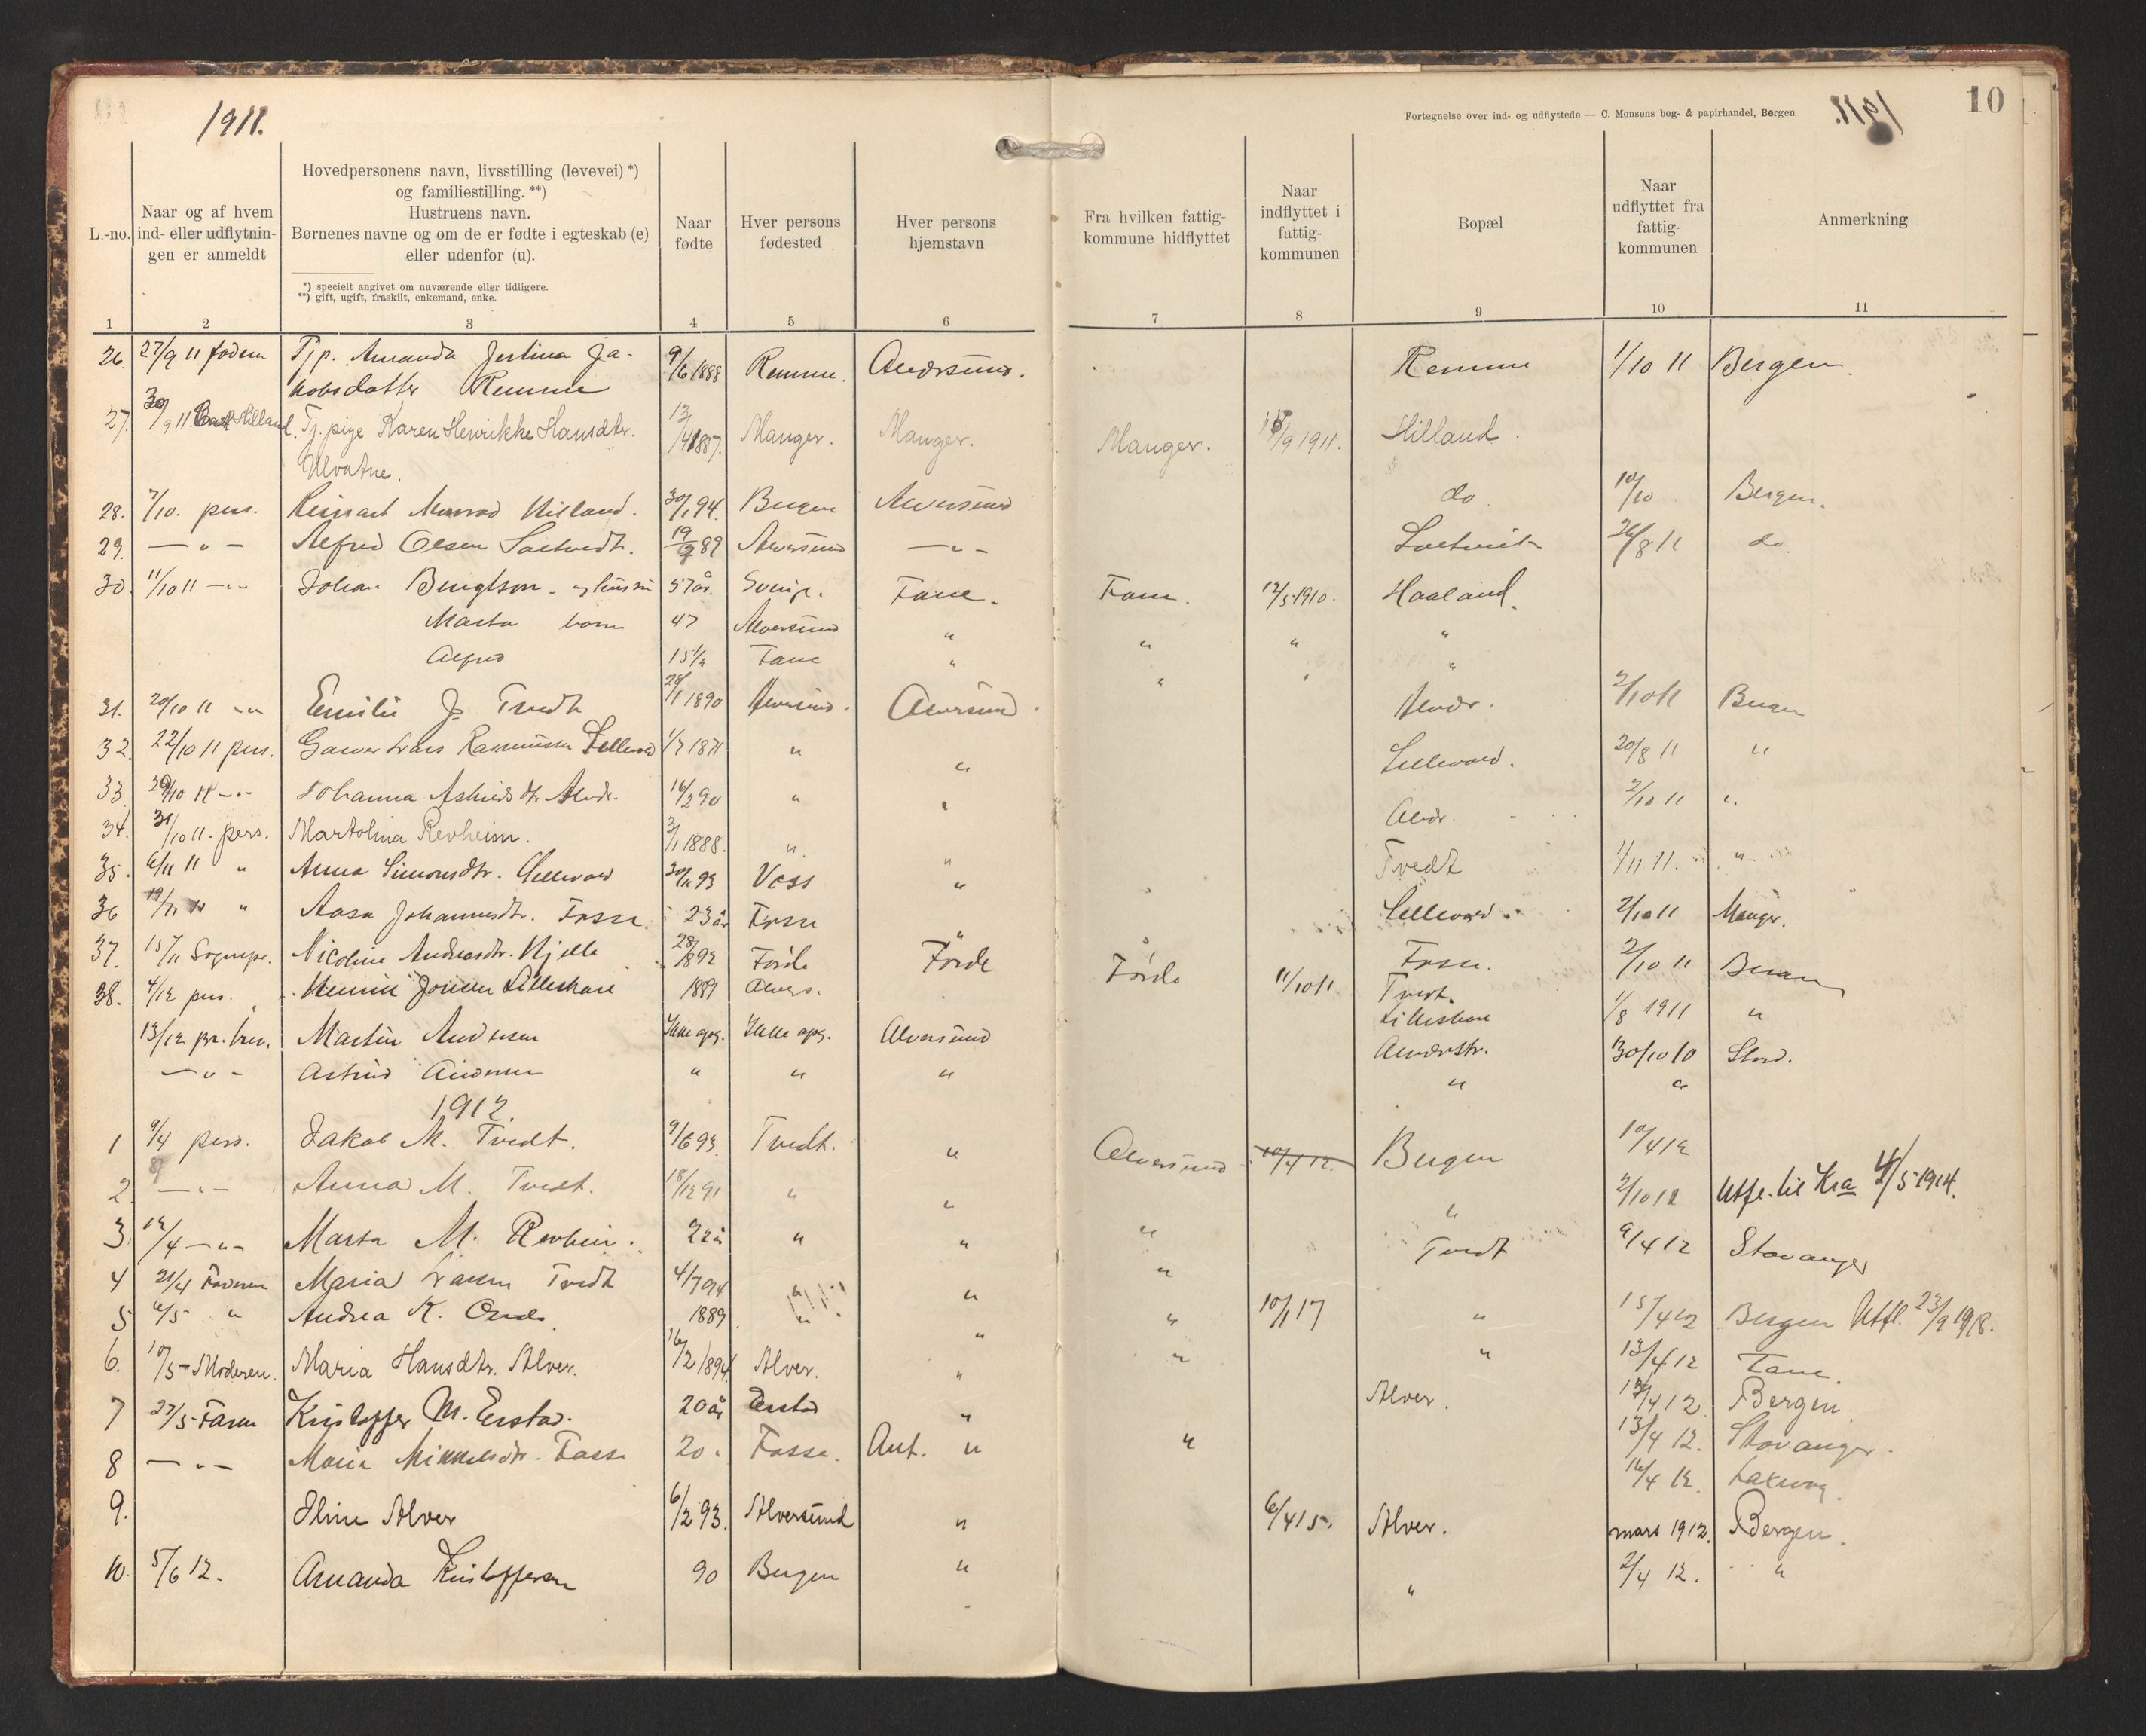 1911.
Fortegnelse over ind- og udflyttede — C. Monsens bog- & papirhandel, Bergen
1911.
10
L.-no.
Naar og af hvem ind- eller udflytningen er anmeldt
Hovedpersonens navn, livsstilling (levevei) *) og familiestilling. **)
Hustruens navn.
Børnenes navne og om de er fødte i egteskab (e) eller udenfor (u).
*) specielt angivet om nuværende eller tidligere.
**) gift, ugift, fraskilt, enkemand, enke.
Naar fødte
Hver persons fødested
Hver persons hjemstavn
Fra hvilken fattigkommune hidflyttet
Naar indflyttet i fattigkommunen
Bopæl
Naar udflyttet fra fattigkommunen
Anmerkning
1 2 3 4 5 6 7 8 9 10 11
26. 27/9 11 Tjp. Amanda Jertina Ja- 9/6 1888 Remme. Alversund. Remme 1/10 11 Bergen.
kobsdatter Remme
27. 30/9 11 Hilland. Tj.pige Karen Henrikke Hansdtr. 13/4 1887. Manger. Manger. Manger. /9 1911. Hilland.
Ulvatne.
28. 7/10. pers. Hilland. 30/1 94. Bergen Alversund do 10/10 Bergen.
29. — " — Alfred Olsen Soltvedt. 19/ 89 Alversund — " — Soltveit 26/8 11 do.
30. 11/10 11 — " — Johan Bengtson. 57 år. Sverige. Fane. Fane. 12/5 1910. Haaland.
Marta born 47 Alversund " " " "
Alfred 15 1/2 Fane " " " "
31. 20/10 11 — " — Emilie J. Tvedt 28/1 1890 Alversund. Alversund. Alvær. 2/10 11 Bergen
32. 22/10 11 pers. Lars Rasmussen Lillevold 1/7 1871 " " Lillevold. 20/8 11 "
33. 29/10 11 — " — Johanna Alvær. 16/2 90 " " Alvær. 2/10 11 "
34. 31/10 11. pers. Martolina Revheim. 3/1 1888. " " Tvedt 1/11 11. "
35. 6/11 11 " Anna Simonsdtr. 30/ 93 Voss " Lillevold. 2/10 11 Manger.
36 19/11 " Aasa Johannesdtr. Fosse. 23 år Fosse " Fosse. 2/10 11 Bergen
37. 15/11 Sognepr. Nicoline Andreasdtr. Hjelle 28/8 92 Førde Førde Førde 11/10 11 Tvedt.
38. 4/12 pers. Lilleskare 1889 Alvers. Lilleskare 1/8 1911 "
13/12 Martin Andersen Ikke opg. Ikke opg. Alversund Alverstr. 30/10 10 Stord.
— " — Astrid Andersen " " " " "
1912.
1 9/4 pers. Jakob M. Tvedt. 9/6 93. Tvedt. " Alversund 10/4 12. Bergen 10/4 12
2 — " — Anna M. Tvedt. 18/12 91 " " " 2/10 12 Utfl. til Kra 4/5 1914.
3. 12/4 — " — Marta M. Revheim. 22 år " " " Tvedt 9/4 12 Stavanger
4 21/4 Faderen Maria Larsen Tvedt 4/7 94 " " "
5 6/5 " Andrea K. 1889 " " " 10/1 17 " 15/4 12 Bergen Utfl. 23/9 1918.
6. 10/5 – Moderen. Maria Hansdtr. Alver. 16/2 1894 Alver. " " " 13/4 12 Fane.
7 27/5 – Faren Kristoffer M. Erstad. 20 år Erstad " Alver. /4 12 Bergen.
8 — " — Maria Mikkelsdtr. Fosse 20 " Fosse. Ant. " " 13/4 12. Stavanger.
16/4 12. Laxevåg.
9. Oline Alver 6/2 93. Alversund " 6/4 15. Alver. mars 1912. Bergen.
10. 5/6 12. Amanda Kristoffersen 90 Bergen " " 2/4 12. "